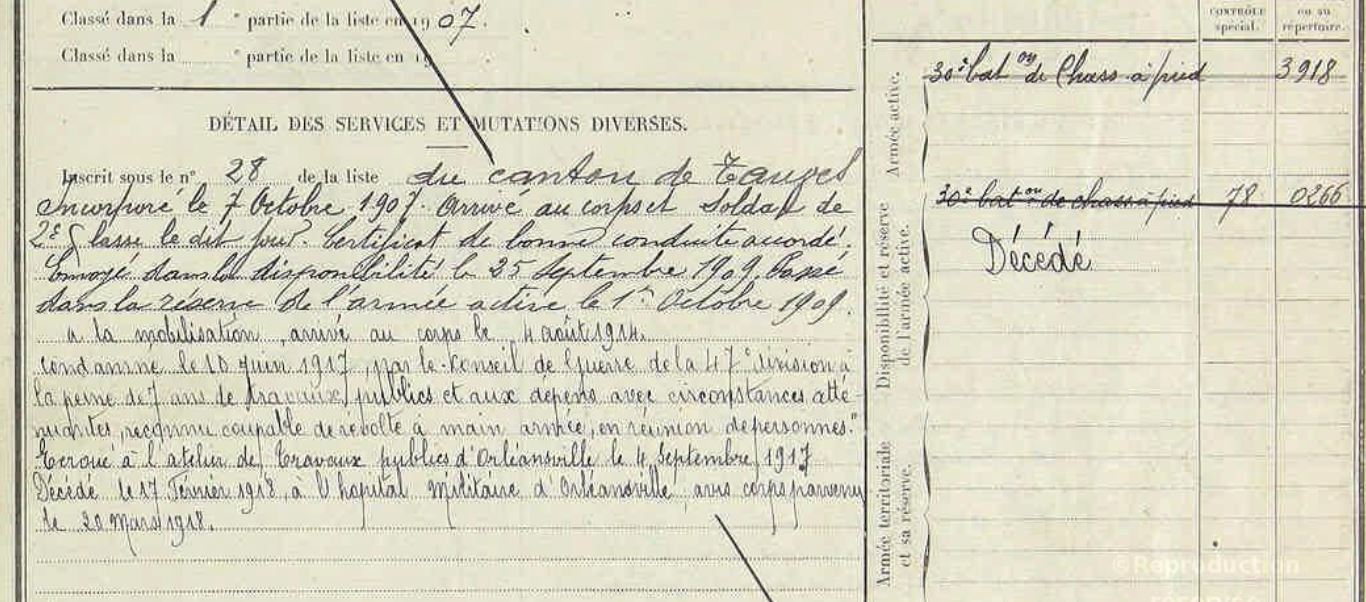 Classé dans la 1 e partie de la liste en 1907.
Classé dans la e partie de la liste en 19
DÉTAIL DES SERVICES ET MUTATIONS DIVERSES.
Inscrit sous le n° 28 de la liste du canton de
Incorporé le 7 Octobre 1907. Arrivé au corps et Soldat de
2e Classe le dit jour. Certificat de bonne conduite accordé.
Envoyé dans la disponibilité le 25 Septembre 1909. Passé
dans la réserve de l'armée active le 1er Octobre 1909.
a la mobilisation, arrivé au corps le 4 août 1914.
Condamné le 10 Juin 1917, par le Conseil de Guerre de la 47e division à
la peine de 7 ans de travaux publics et aux dépens avec circonstances atté-
nuantes, reconnu coupable de révolte à main armée, en réunion de personnes."
Ecroué à l'atelier de Travaux publics d'Orléansville le 4 Septembre 1917
Décédé le 17 Février 1918, à l'hopital Militaire d'Orléansville, avis corps parvenu
le 20 Mars 1918.
CONTRÔLE spécial.
ou au répertoire.
Armée active.
30e bat on de Chass à pied 3918
Disponibilité et réserve de l'armée active.
30e bat on de chass à pied 78 0266
Décédé
Armée territoriale et sa réserve.
©Reproduction
réservée